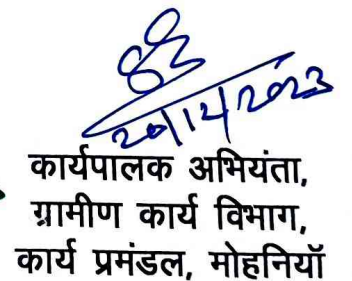 20/12/2023
कार्यपालक अभियंता,
ग्रामीण कार्य विभाग,
कार्य प्रमंडल, मोहनियॉ